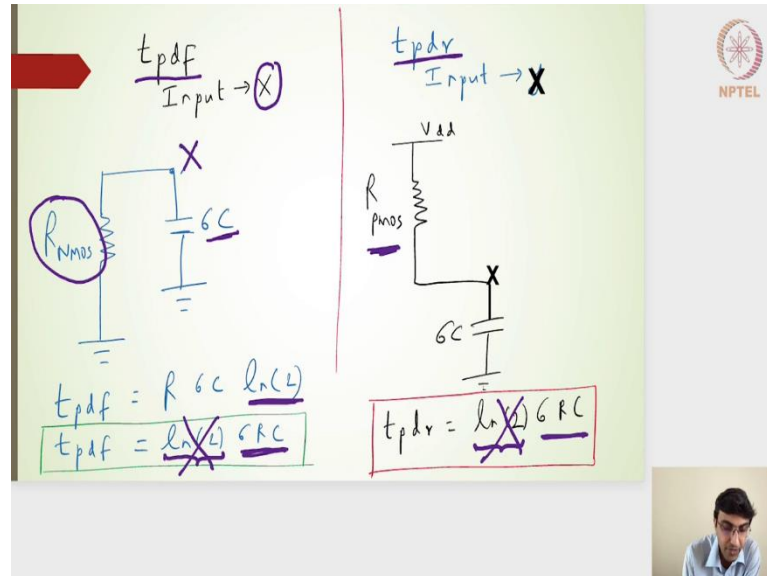 tpdf
Input → X
X
RNMOS
6C
tpdf = R 6C ln(2)
tpdf = ln(2) 6RC
tpdr
Input → X
Vdd
R
pmos
X
6C
tpdr = ln(2) 6RC
NPTEL